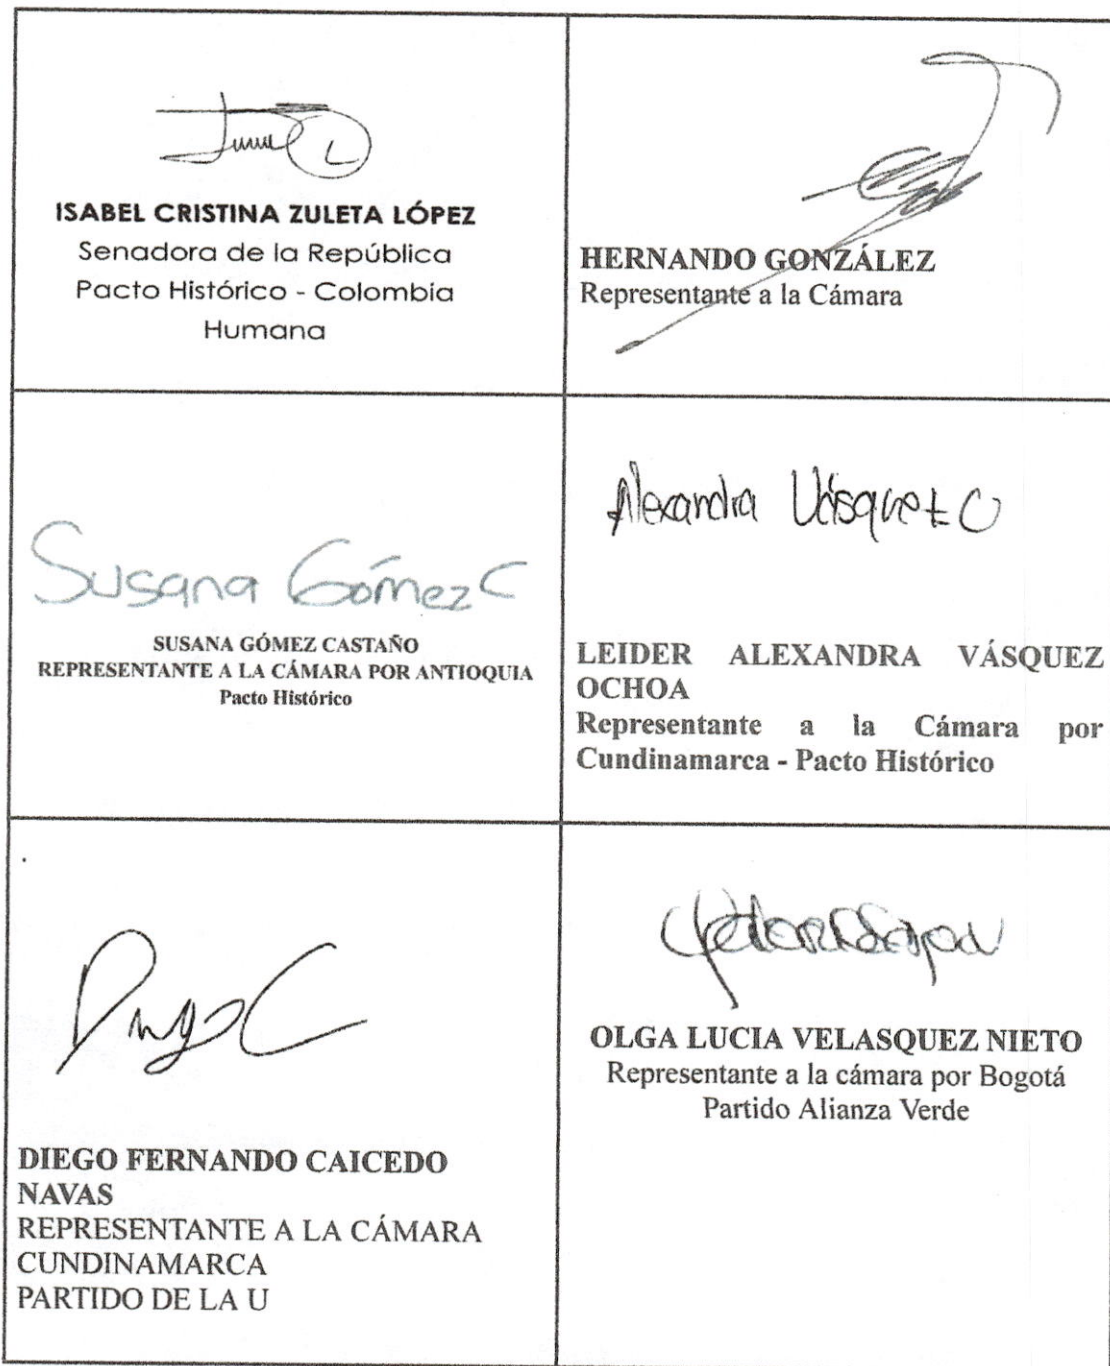 ISABEL CRISTINA ZULETA LÓPEZ
Senadora de la República
Pacto Histórico - Colombia
Humana
HERNANDO GONZÁLEZ
Representante a la Cámara
Susana Gómez C
SUSANA GÓMEZ CASTAÑO
REPRESENTANTE A LA CÁMARA POR ANTIOQUIA
Pacto Histórico
Alexandra Vásquez O
LEIDER ALEXANDRA VÁSQUEZ
OCHOA
Representante a la Cámara por
Cundinamarca - Pacto Histórico
Diego C
DIEGO FERNANDO CAICEDO
NAVAS
REPRESENTANTE A LA CÁMARA
CUNDINAMARCA
PARTIDO DE LA U
OLGA LUCIA VELASQUEZ NIETO
Representante a la cámara por Bogotá
Partido Alianza Verde